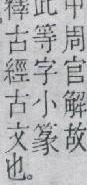 中周官解故
此等字小篆
釋古經古文也。